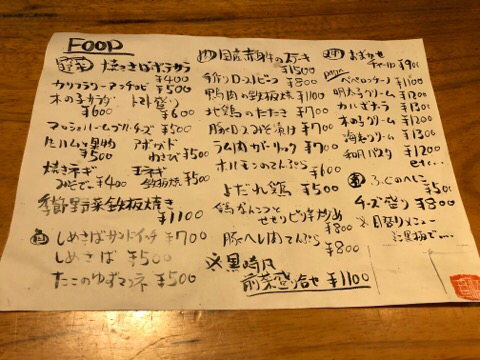 FOOD
野菜 焼きさばポテサラ ¥400
カリフラワーアンチョビ ¥500
木の子サラダ ¥600
トマト盛り ¥600
マッシュルームブルーチーズ ¥500
生ハムと果物 ¥500
アボカドわさび ¥500
焼きネギみそで ¥400
玉ネギ鉄板焼 ¥500
季節野菜鉄板焼き ¥1100
魚 しめさばサンドイッチ ¥700
しめさば ¥500
たこのゆずマリネ ¥500
肉 国産赤身牛のステーキ ¥1500
手作りローストビーフ ¥800
鴨肉の鉄板焼 ¥1100
地鶏のたたき ¥700
豚ロースみそ漬け ¥700
ラム肉ガーリック ¥700
ホルモンのてんぷら ¥600
よだれ鶏 ¥500
鶏なんこつとせせりピリ辛炒め ¥800
豚ヘレ肉てんぷら ¥800
※黒崎風
前菜盛り合せ ¥1100
おまかせ
チャーハン ¥900
ペペロンチーノ ¥1100
明太子クリーム ¥1200
カルボナーラ ¥1300
木の子クリーム ¥1200
海老クリーム ¥1300
和風パスタ ¥1200
etc...
ふぐのへしこ ¥500
チーズ盛り ¥800
※日替りメニュー
は黒板で...